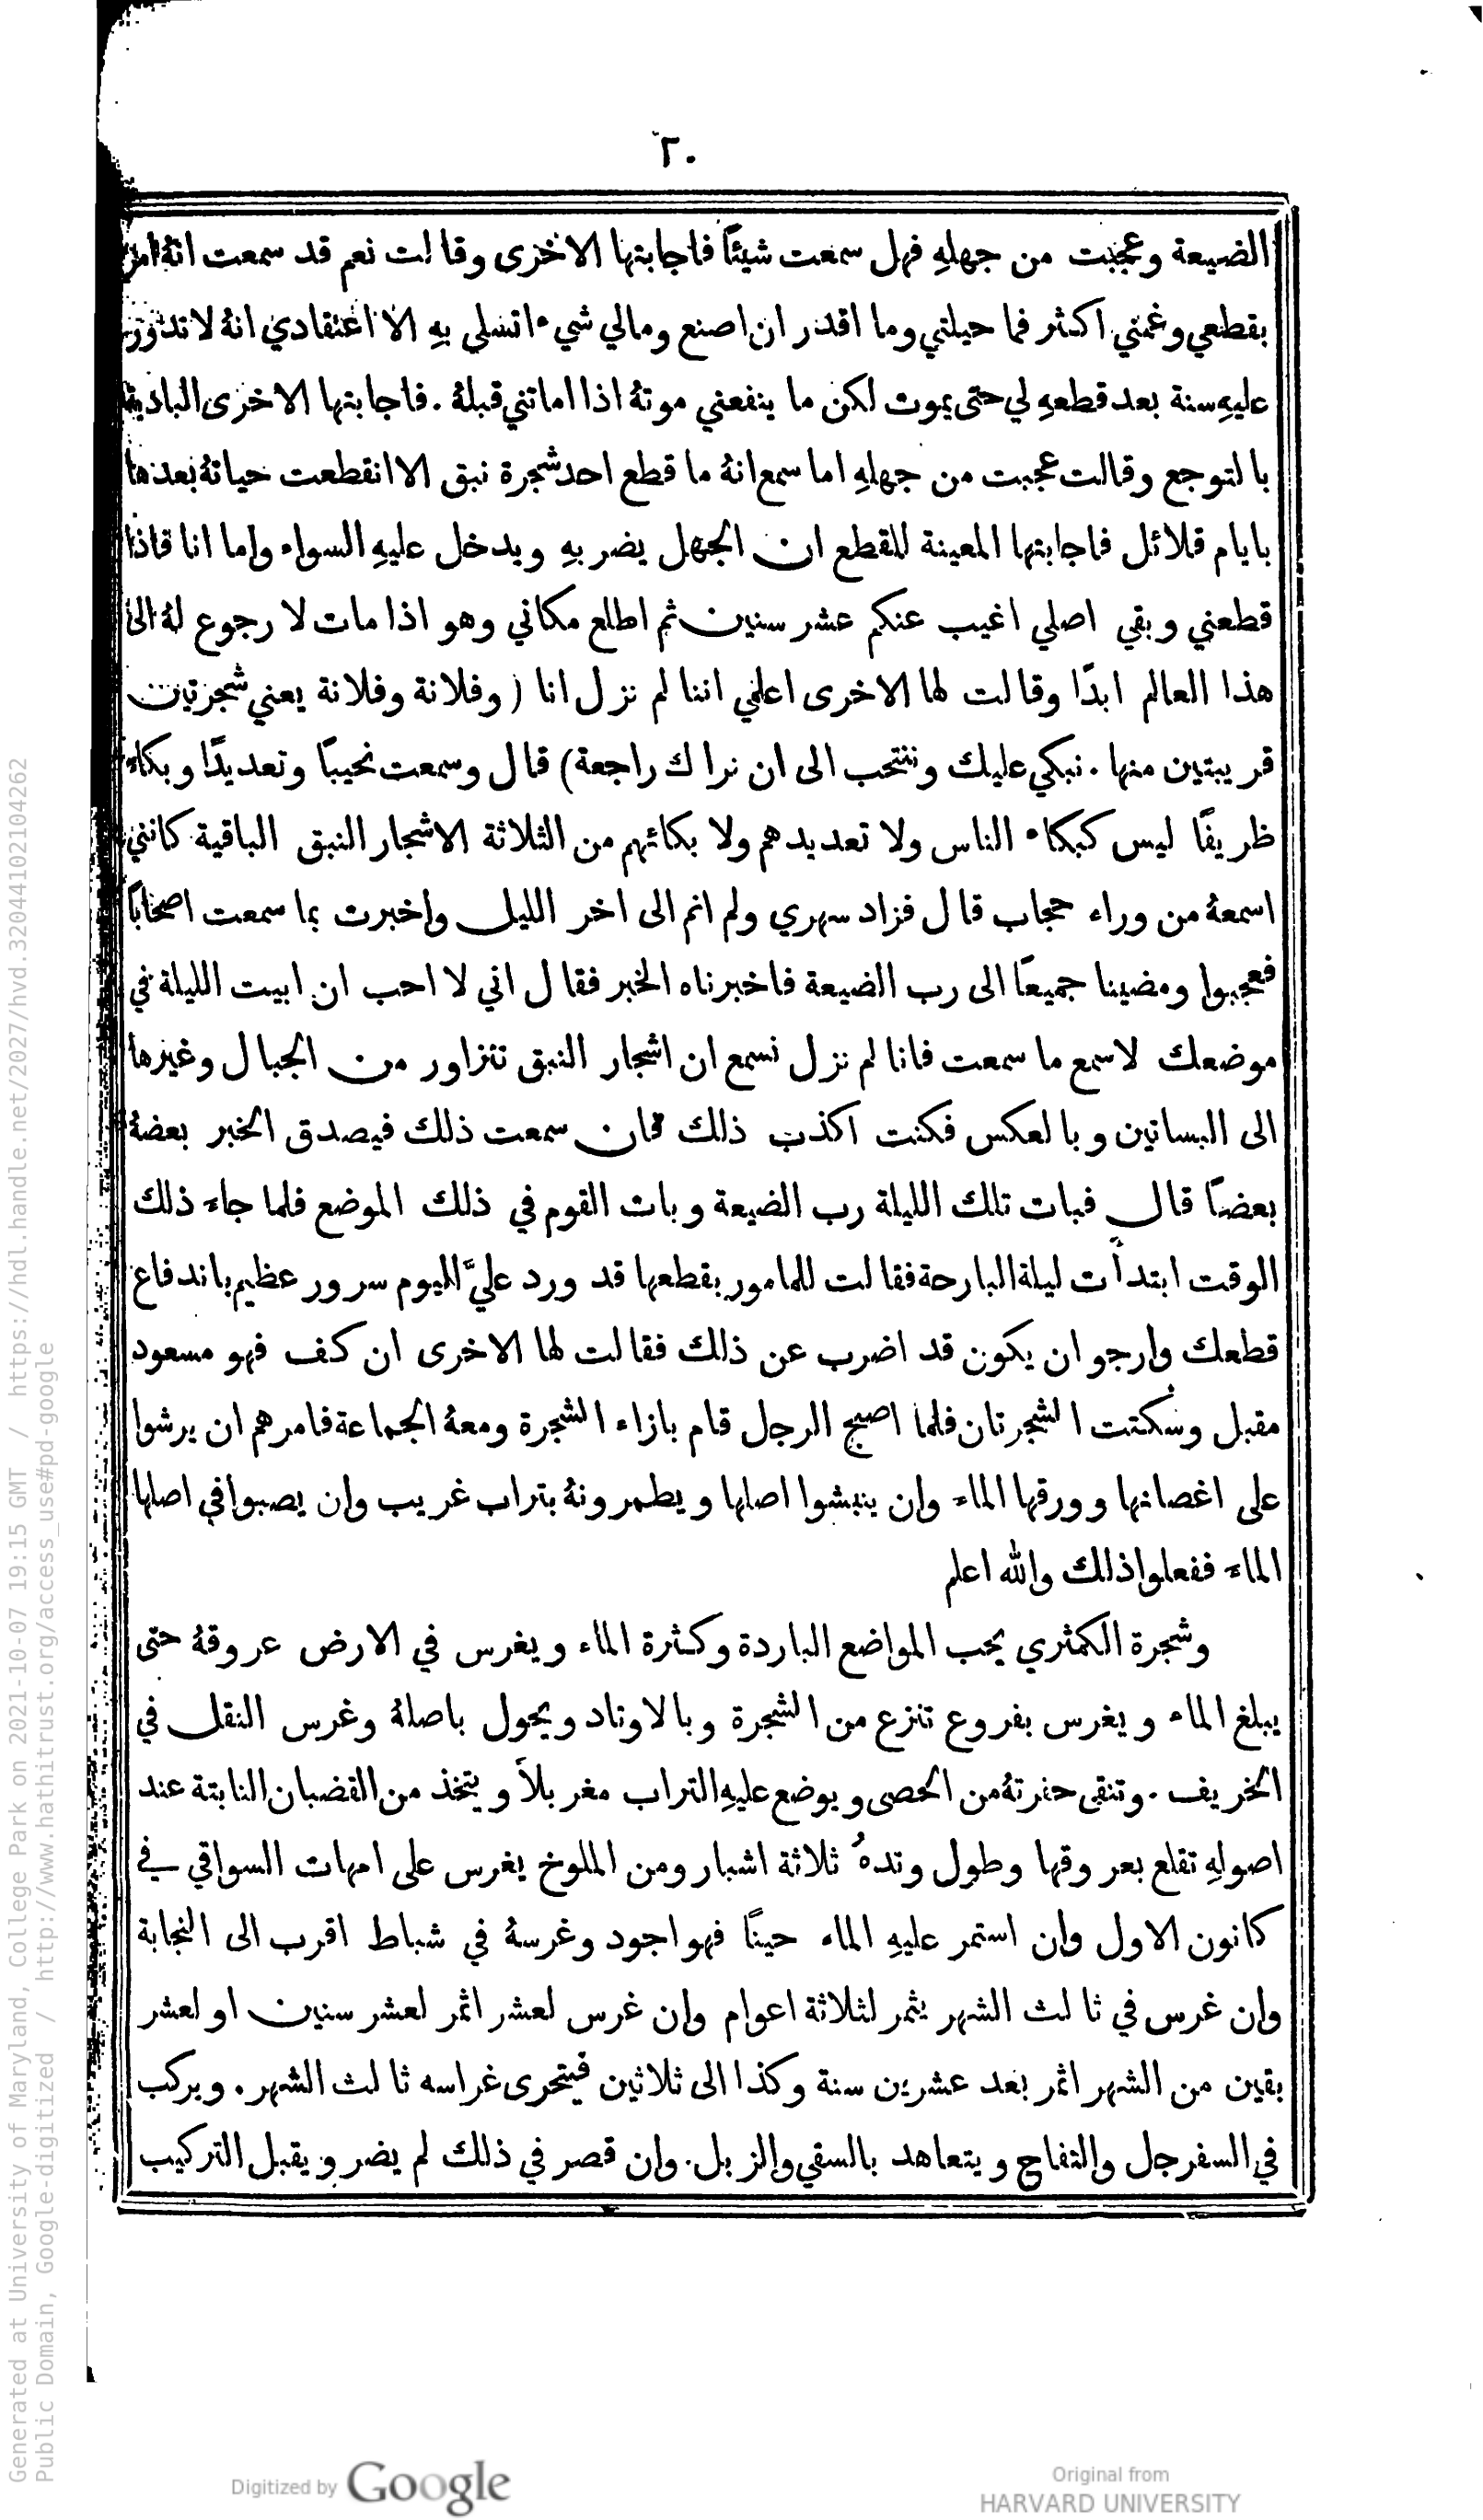 ٢٠
الضيعة وعجبت من جهلهِ فهل سمعت شيئًا فاجابتها الاخرى وقالت نعم قد سمعت انهُ امر
بقطعي وغمني اكثر فما حيلتي وما اقدر ان اصنع ومالي شيء اتسلى بهِ الا اعتقادي انهُ لا تدور
عليهِ سنة بعد قطعهِ لي حتى يموت لكن ما ينفعني موتهُ اذا اماتني قبلهُ . فاجابتها الاخرى البادية
بالتوجع وقالت عجبت من جهلهِ اما سمع انهُ ما قطع احد شجرة نبق الا انقطعت حياتهُ بعدها
بايام قلائل فاجابتها المعينة للقطع ان الجهل يضر بهِ ويدخل عليهِ السواء واما انا فاذا
قطعني وبقي اصلي اغيب عنكم عشر سنين ثم اطلع مكاني وهو اذا مات لا رجوع لهُ الى
هذا العالم ابدًا وقالت لها الاخرى اعلمي اننا لم نزل انا ( وفلانة وفلانة يعني شجرتين
قريبتين منها . نبكي عليك وننتحب الى ان نراك راجعة) قال وسمعت نحيبًا وتعديدًا وبكاء
ظريفًا ليس كبكاء الناس ولا تعديدهم ولا بكائهم من الثلاثة الاشجار النبق الباقية كانني
اسمعهُ من وراء حجاب قال فزاد سهري ولم انم الى اخر الليل واخبرت بما سمعت اصحابًا
فعجبوا ومضينا جميعًا الى رب الضيعة فاخبرناه الخبر فقال اني لا احب ان ابيت الليلة في
موضعك لاسمع ما سمعت فانا لم نزل نسمع ان اشجار النبق تتزاور من الجبال وغيرها
الى البساتين وبالعكس فكنت اكذب ذلك فان سمعت ذلك فيصدق الخبر بعضهُ
بعضًا قال فبات تلك الليلة رب الضيعة وبات القوم في ذلك الموضع فلما جاء ذلك
الوقت ابتدأت ليلة البارحة فقالت للمامور بقطعها قد ورد عليَّ اليوم سرور عظيم باندفاع
قطعك وارجو ان يكون قد اضرب عن ذلك فقالت لها الاخرى ان كف فهو مسعود
مقبل وسكتت الشجرتان فلما اصبح الرجل قام بازاء الشجرة ومعهُ الجماعة فامرهم ان يرشوا
على اغصانها وورقها الماء وان ينبشوا اصلها ويطمرونهُ بتراب غريب وان يصبوا في اصلها
الماء ففعلوا ذلك والله اعلم
وشجرة الكمثري يحب المواضع الباردة وكثرة الماء ويغرس في الارض عروقهُ حتى
يبلغ الماء ويغرس بفروع تنزع من الشجرة وبالاوتاد ويحول باصلهُ وغرس النقل في
الخريف . وتنقى حفرتهُ من الحصى ويوضع عليهِ التراب مغربلاً ويتخذ من القضبان النابتة عند
اصولهِ تقلع بعروقها وطول وتدهُ ثلاثة اشبار ومن الملوخ يغرس على امهات السواقي في
كانون الاول وان استمر عليهِ الماء حينًا فهو اجود وغرسهُ في شباط اقرب الى النجابة
وان غرس في ثالث الشهر يثمر لثلاثة اعوام وان غرس لعشر اثمر لعشر سنين او لعشر
بقين من الشهر اثمر بعد عشرين سنة وكذا الى ثلاثين فيتحرى غراسه ثالث الشهر . ويركب
في السفرجل والتفاح ويتعاهد بالسقي والزبل . وان قصر في ذلك لم يضر ويقبل التركيب
Generated at University of Maryland, College Park on 2021-10-07 19:15 GMT / https://hdl.handle.net/2027/hvd.32044102104262
Public Domain, Google-digitized / http://www.hathitrust.org/access_use#pd-google
Digitized by Google
Original from
HARVARD UNIVERSITY